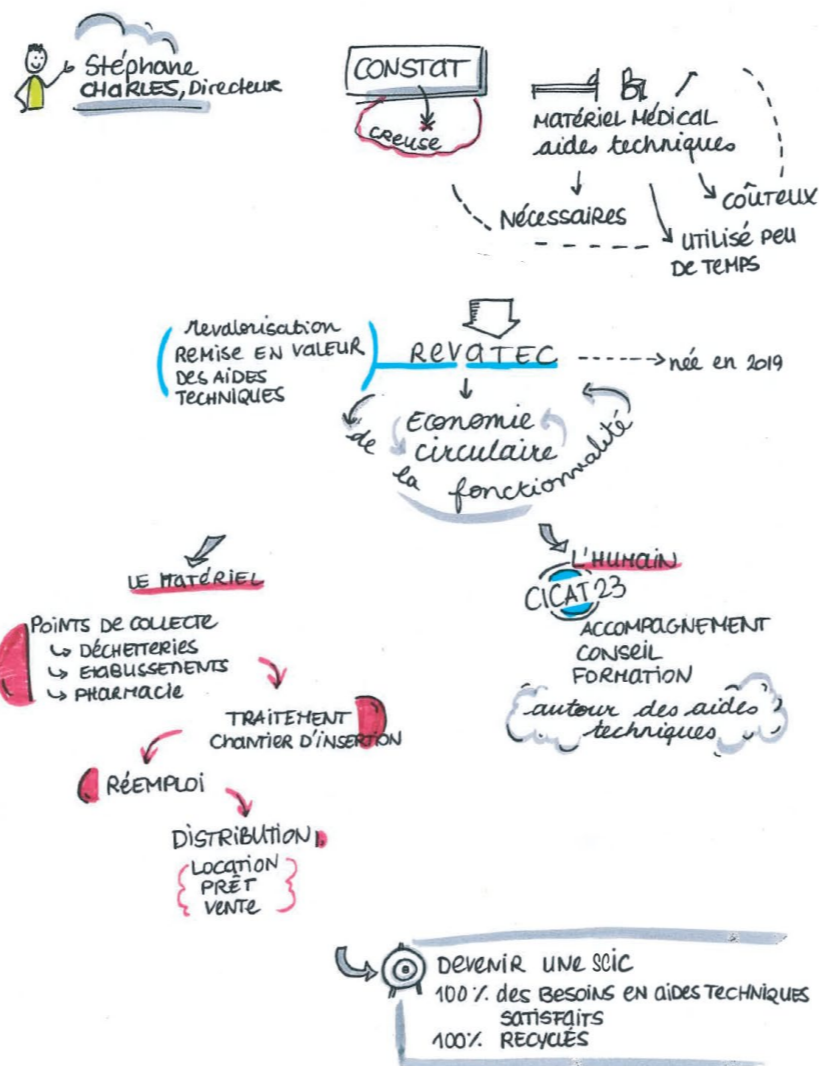 Stéphane
CHARLES, Directeur
CONSTAT
CREUSE
MATÉRIEL MÉDICAL
aides techniques
NÉCESSAIRES
COÛTEUX
UTILISÉ PEU
DE TEMPS
Revalorisation
REMISE EN VALEUR
DES AIDES
TECHNIQUES
REVATEC
née en 2019
Economie
circulaire
de la fonctionnalité
LE MATÉRIEL
POINTS DE COLLECTE
DÉCHETTERIES
ETABLISSEMENTS
PHARMACIE
TRAITEMENT
CHANTIER D'INSERTION
RÉEMPLOI
DISTRIBUTION
LOCATION
PRÊT
VENTE
L'HUMAIN
CICAT 23
ACCOMPAGNEMENT
CONSEIL
FORMATION
autour des aides
techniques
DEVENIR UNE SCIC
100% des BESOINS EN AIDES TECHNIQUES
SATISFAITS
100% RECYCLÉS